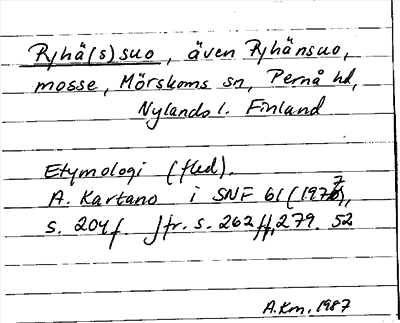 Ryhä(s)suo, även Ryhänsuo,
mosse, Mörskoms sn, Pernå hd,
Nylands l. Finland
Etymologi (fled).
A. Kartano i SNF 61 (1977),
s. 204 f. Jfr. s. 262 ff, 279. 52
A.Km. 1987